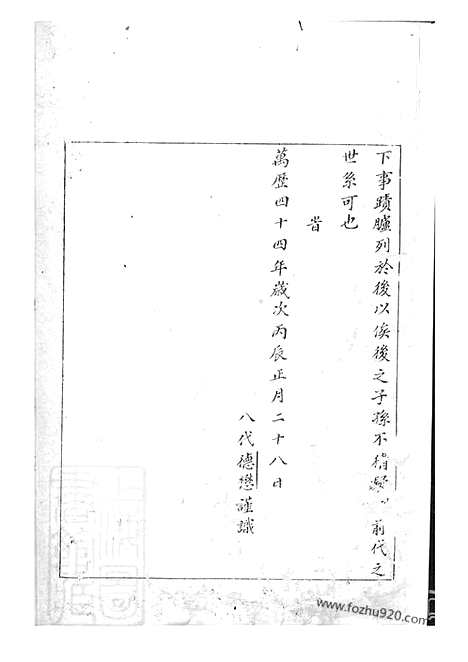 下事蹟臚列於後以俟後之子孫不 前代之
世系可也
旹
萬歷四十四年歲次丙辰正月二十八日
八代德懋謹識
www.fozhu920.com